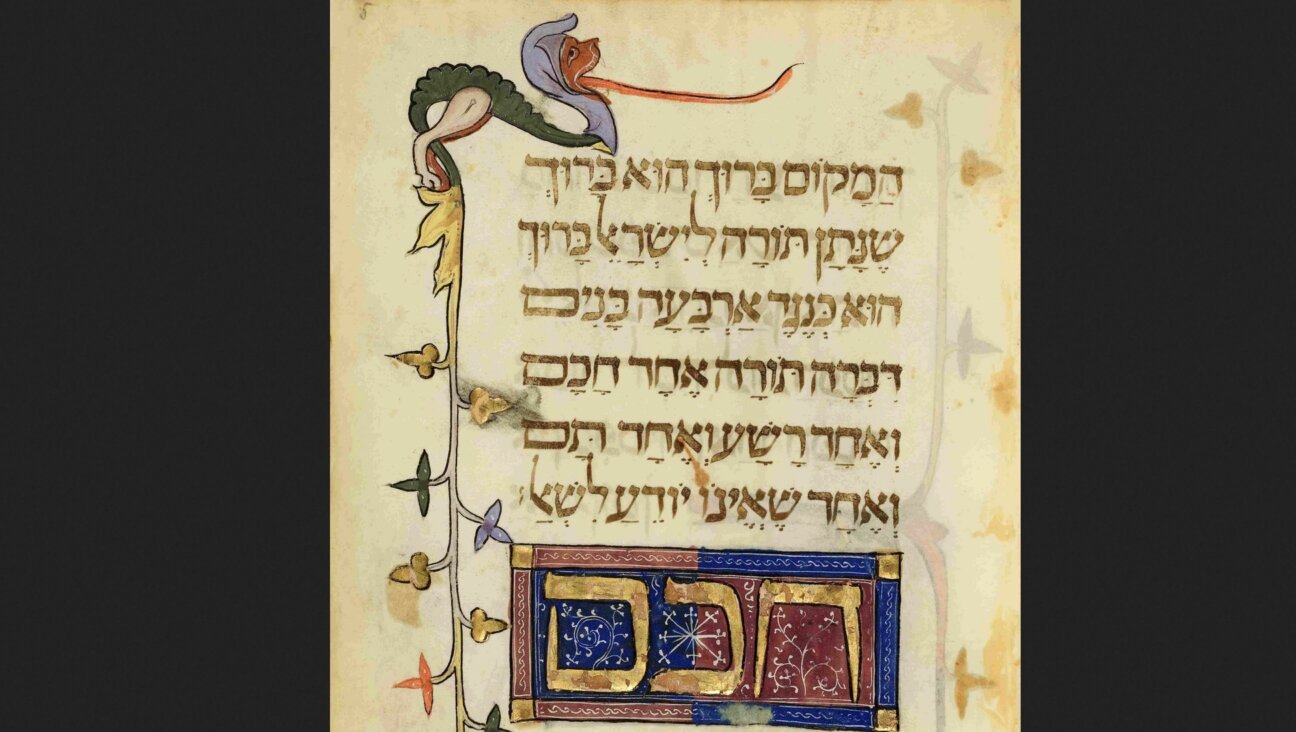 הַמָּקוֹם בָּרוּךְ הוּא בָּרוּךְ
שֶׁנָּתַן תּוֹרָה לְיִשְׂרָאֵל בָּרוּךְ
הוּא כְּנֶגֶד אַרְבָּעָה בָנִים
דִּבְּרָה תוֹרָה אֶחָד חָכָם
וְאֶחָד רָשָׁע וְאֶחָד תָּם
וְאֶחָד שֶׁאֵינוֹ יוֹדֵעַ לִשְׁאַל׃
חכם